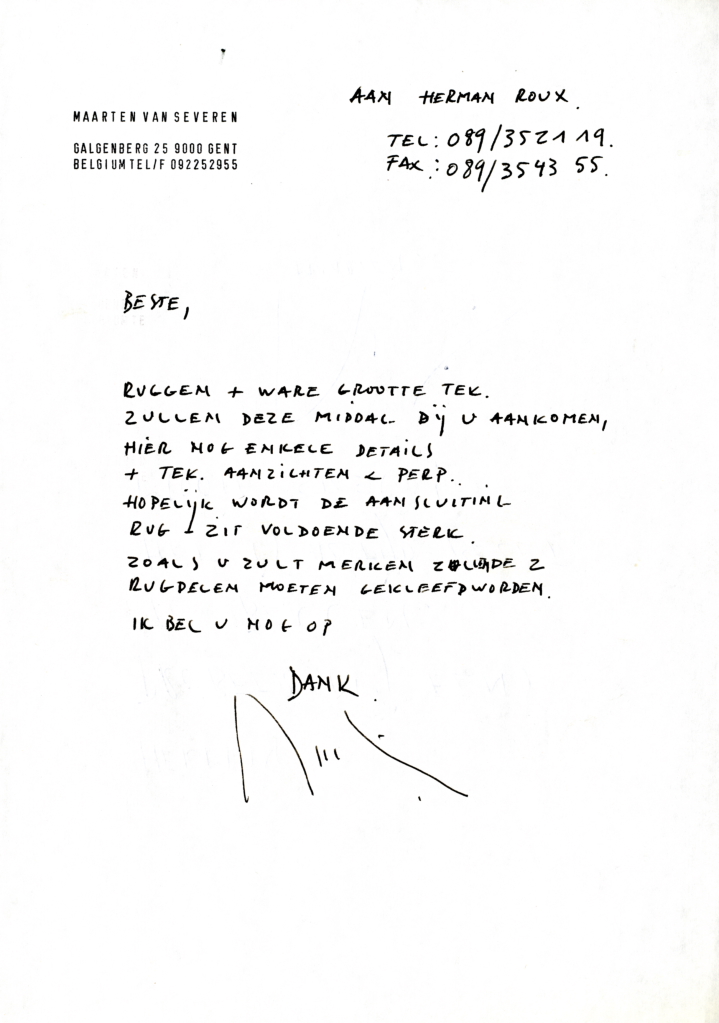 MAARTEN VAN SEVEREN
GALGENBERG 25 9000 GENT
BELGIUM TEL/F 092252955
AAN HERMAN ROUX.
TEL: 089/3521 19.
FAX: 089/3543 55.
BESTE,
RUGGEN + WARE GROOTTE TEK.
ZULLEN DEZE MIDDAG BIJ U AANKOMEN,
HIER NOG ENKELE DETAILS
+ TEK. AANZICHTEN & PERP..
HOPELIJK WORDT DE AANSLUITING
RUG - ZIT VOLDOENDE STERK.
ZOALS U ZULT MERKEN DE 2
RUGDELEN MOETEN GEKLEEFD WORDEN.
IK BEL U NOG OP
DANK.